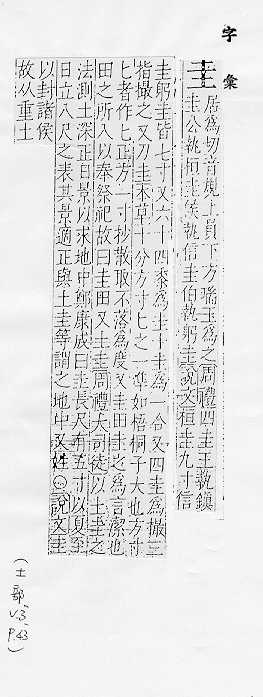 字彙
圭 居爲切音規上員下方瑞玉爲之周禮四圭王執鎮
圭公執桓圭侯執信圭伯執躬圭說文桓圭九寸信
圭躬圭皆七寸又六十四黍爲圭十圭爲一合又四圭爲撮三
指撮之又刀圭本草十分方寸匕之一準如梧桐子大也方寸
匕者作匕正方一寸抄散取不落爲度又圭田圭之爲言潔也
田之所入以奉祭祀故曰圭田又土圭周禮大司徒以土圭之
法測土深正日景以求地中鄭康成曰圭長尺有五寸以夏至
日立八尺之表其景適正與土圭等謂之地中又姓 說文圭
以封諸侯
故从重土
(土部,
V.3,
P.43)